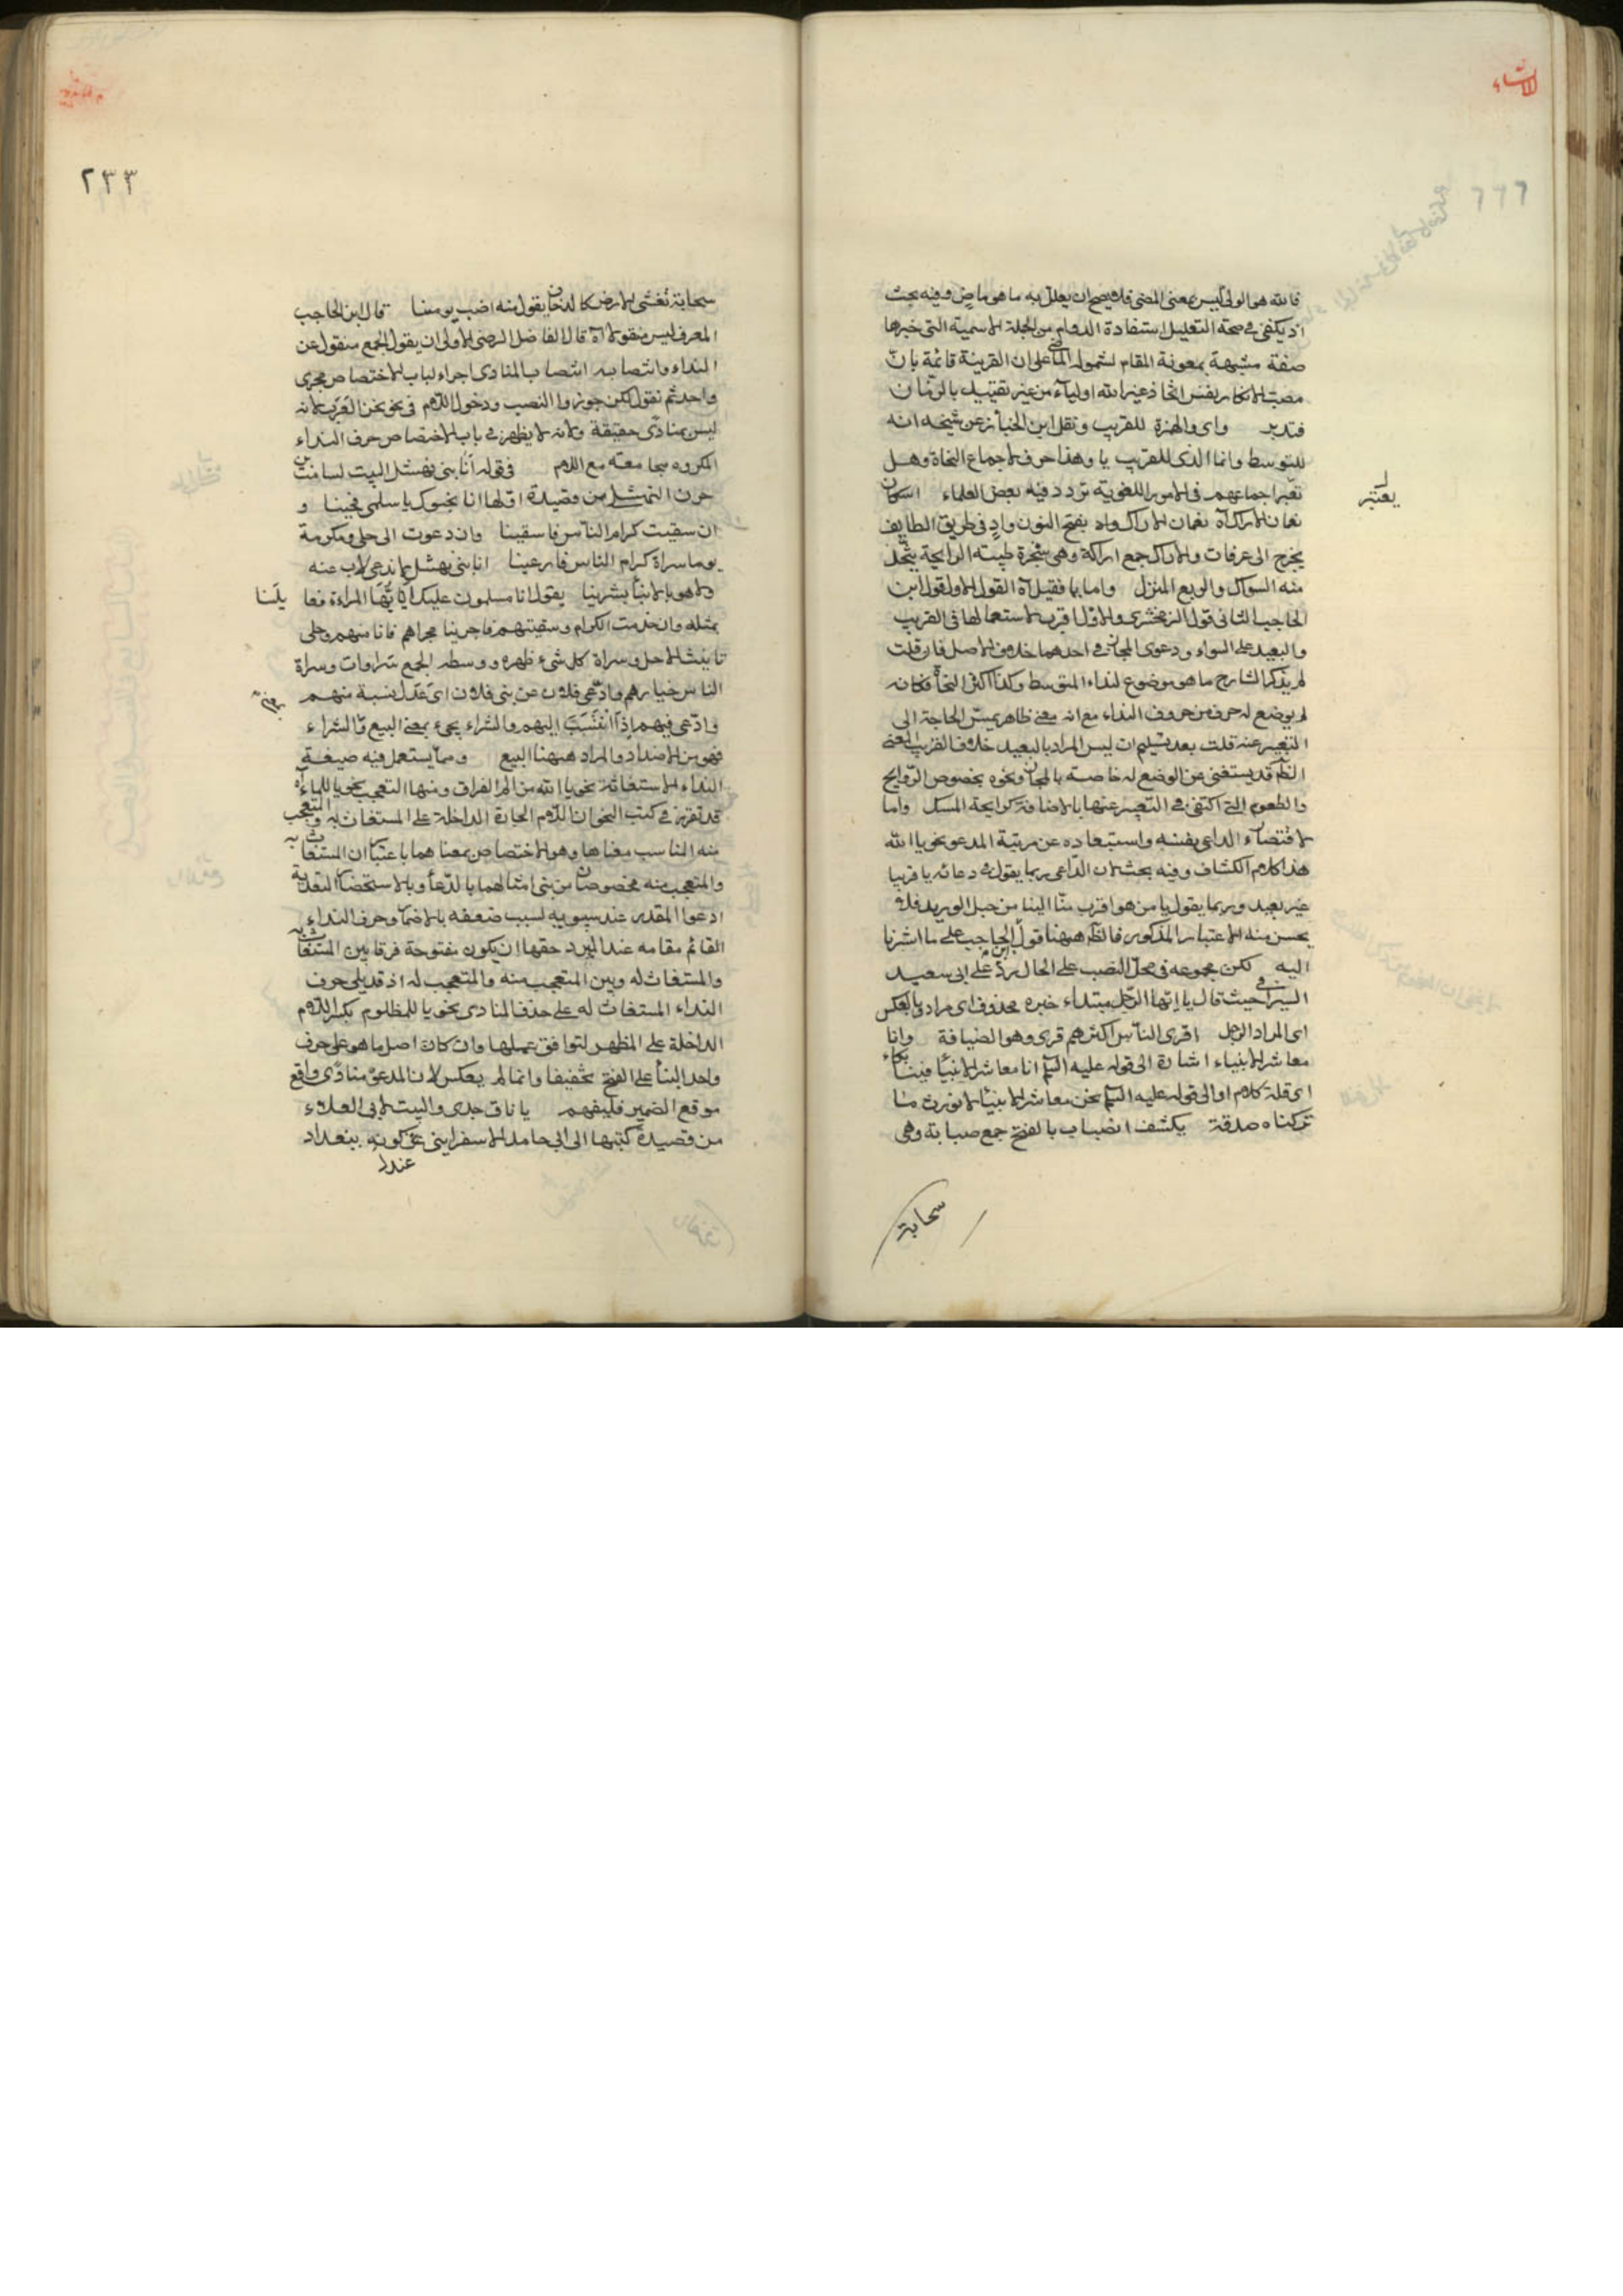 الانشاء
فالله هو الولي ليس بمعنى المضي فلا يصح ان يعلل به ما هو ماض وفيه بحث
اذ يكفي في صحة التعليل استفادة الدوام من الجملة الاسمية التي خبرها
صفة مشبهة بمعونة المقام لشموله الماضي على ان القرينة قائمة بان
مصب الانكار نفس اتخاذ غير الله اولياء من غير تقييد بالزمان
فتدبر واي والهمزة للقريب ونقل ابن الخباز عن شيخه انه
للمتوسط وانما الذي للقريب يا وهذا خرق لاجماع النحاة وهل
يعتبر اجماعهم في الامور اللغوية تردد فيه بعض العلماء اسكان
يعتبر
نعمان الاراك آه نعمان الاراك واد بفتح النون واد في طريق الطايف
يخرج الى عرفات والاراك جمع اراكة وهي شجرة طيبته الرايحة يتخذ
منه السواك والربع المنزل واما يا فقيل آه القول الاول قول ابن
الحاجب الثاني قول الزمخشري والاول اقرب لاستعمالها في القريب
والبعيد على السواء ودعوى المجاز في احدهما خلاف الاصل فان قلت
لم يذكر الشارح ما هو موضوع لنداء المتوسط وكذا اكثر النحاة فكانه
لم يوضع له حرف من حروف النداء مع انه معنى ظاهر يمس الحاجة الى
التعبير عنه قلت بعد تسليم ان ليس المراد بالبعيد خلاف القريب المعنى
الظاهر قد يستغنى عن الوضع له خاصة بالمجاز ونحوه بخصوص الروايح
والطعوم التي اكتفى في التعبير عنها بالاضافة كرايحة المسك واما
لاقتصاء الداعي نفسه واستبعاده عن مرتبة المدعو نحو يا الله
هذا كلام الكشاف وفيه بحث لان الداعي ربما يقول في دعائه يا قريبا
غير بعيد وربما يقول يا من هو اقرب منا الينا من حبل الوريد فلا
يحسن منه الاعتبار المذكور فالظاهر ههنا قول ابن الحاجب على ما اشرنا
اليه لكن مجموعه في محل النصب على الحال رد على ابي سعيد
السيرافي حيث قال يا ايها الرجل مبتداء خبره محذوف اي مراد او بالعكس
اي المراد الرجل اقرى الناس اكثرهم قرى وهو الضيافة وانا
معاشر الانبياء اشارة الى قوله عليه السلام انا معاشر الانبياء فينا بكاء
اي قلة كلام او الى قوله عليه السلام نحن معاشر الانبياء لا نورث ما
تركناه صدقة يكشف الضباب بالفتح جمع ضبابة وهي
سحابة
٢٣٣
سحابة تغشى الارض كالدخان يقول منه اضب يومنا قال ابن الحاجب
المعرف ليس منقولا آه قال الفاضل الرضي الاولى ان يقول الجمع منقول عن
النداء وانتصابه انتصاب المنادى اجراء لباب الاختصاص مجرى
واحد ثم نقول لكن جوزوا النصب ودخول اللام في نحو نحن العرب لانه
ليس بمنادى حقيقة ولانه لا يظهر في باب الاختصاص حرف النداء
المكروه مجامعته مع اللام في قوله انا بني نهشل البيت لسامة بن
حزن النهشلي من قصيدة اولها انا محيوك يا سلمى فحيينا و
ان سقيت كرام الناس فاسقينا وان دعوت الى جلى ومكرمة
يوما سراة كرام الناس فادعينا انا بني نهشل لا ندعي لاب عنه
ولا هو بالابناء يشرينا يقول انا مسلمون عليك ايتها المراءة فعا يلنا
بمثله وان خدمت الكرام وسقيتهم فاجرينا مجراهم فانا منهم وجلى
تانيث الاجل وسراة كل شيء ظهره ووسطه الجمع سراوات وسراة
الناس خيارهم وادعى فلان عن بني فلان اي عدل بنسبة منهم
وادعى فيهم اذا انتسبت اليهم والشراء يجيء بمعنى البيع والشراء
فهو من الاضداد والمراد ههنا البيع ومما يستعمل فيه صيغة
النداء الاستغاثة نحو يا الله من الم الفراق ومنها التعجب نحو يا للماء آه
قد تقرر في كتب النحو ان اللام الجارة الداخلة على المستغاث به والمتعجب
منه المناسب معناها وهو الاختصاص بمعناهما باعتبار ان المستغاث به
والمتعجب منه مخصوصان من بني امثالهما بالدعاء وبالاستحضار لتعدية
ادعوا المقدر عند سيبويه لسبب ضعفه بالاضمار وحرف النداء
القائم مقامه عند المبرد حقها ان يكون مفتوحة فرقا بين المستغاث به
والمستغاث له وبين المتعجب منه والمتعجب له اذ قد يلي حرف
النداء المستغاث له على حذف المنادى نحو يا للمظلوم بكسر اللام
الداخلة على المظهر لتوافق عملها وان كان اصل ما هو على حرف
واحد البناء على الفتح تخفيفا وانما لم يعكس لان المدعو منادى واقع
موقع الضمير فليفهم يا ناق جدي والبيت لابي العلاء
من قصيدة كتبها الى ابي حامد الاسفرايني عند كونه ببغداد